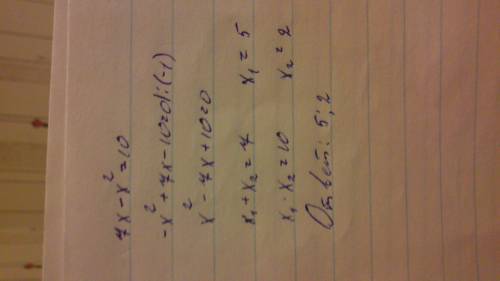 7x - x² = 10
-x² + 7x - 10 = 0 |:(-1)
x² - 7x + 10 = 0
x₁ + x₂ = 7 x₁ = 5
x₁ · x₂ = 10 x₂ = 2
Ответ: 5; 2